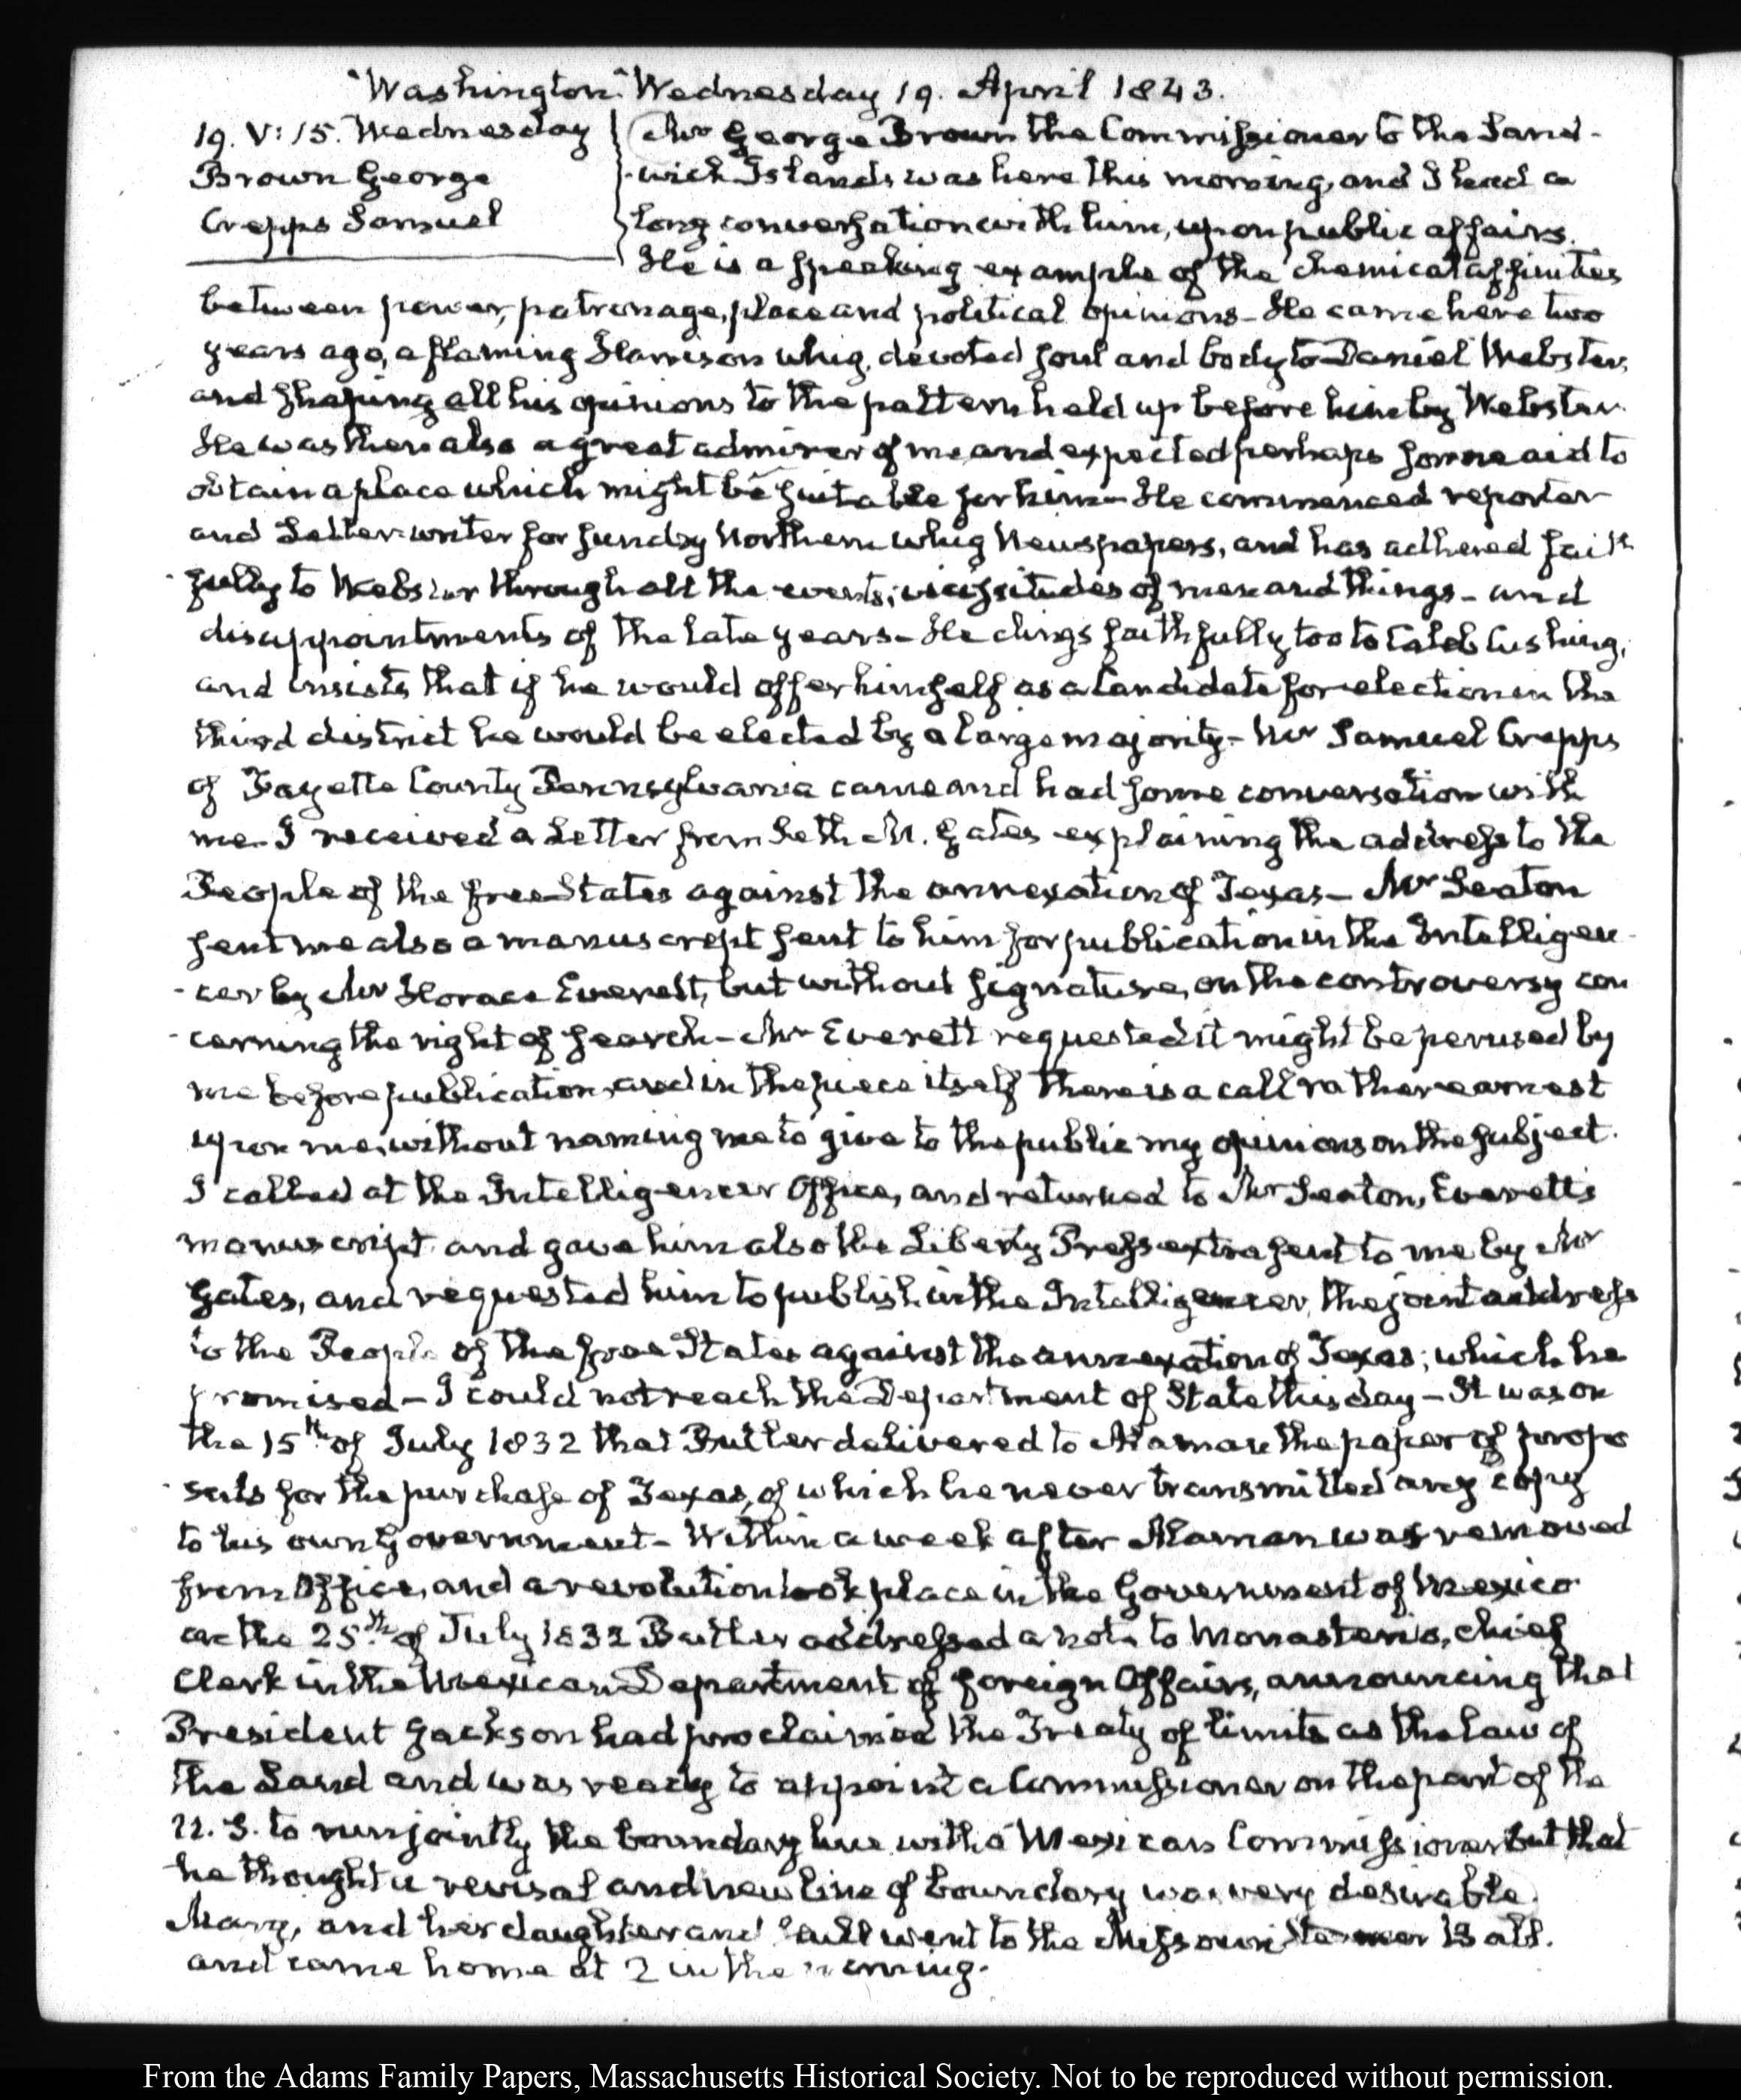 Washington Wednesday 19. April 1843.
19. V: 15. Wednesday
Brown George
Crepps Samuel
Mr George Brown the Commissioner to the Sand-
-wich Islands was here this morning, and I had a
long conversation with him, upon public affairs.
He is a speaking example of the chemical affinities
between power, patronage, place and political opinions - He came here two
years ago, a flaming Harrison whig, devoted soul and body to Daniel Webster,
and shaping all his opinions to the pattern held up before him by Webster.
He was then also a great admirer of me and expected perhaps some aid to
obtain a place which might be suitable for him - He commenced reporter
and Letter-writer for sundry Northern whig Newspapers, and has adhered faith
-fully to Webster through all the events, vicissitudes of men and things - and
disappointments of the late years - He clings faithfully too to Caleb Cushing,
and insists that if he would offer himself as a Candidate for election in the
third district he would be elected by a large majority - Mr Samuel Crepps
of Fayette County Pennsylvania came and had some conversation with
me. I received a Letter from Seth M. Gates explaining the address to the
People of the free States against the annexation of Texas - Mr Seaton
sent me also a manuscript sent to him for publication in the Intelligen-
-cer by Mr Horace Everett, but without signature, on the controversy con
-cerning the right of search - Mr Everett requested it might be perused by
me before publication, and in the piece itself there is a call rather earnest
upon me, without naming me to give to the public my opinions on the subject.
I called at the Intelligencer Office, and returned to Mr Seaton, Everett's
manuscript and gave him also the Liberty Press extra sent to me by Mr
Gates, and requested him to publish in the Intelligencer, the joint address
to the People of the free States against the annexation of Texas; which he
promised - I could not reach the Department of State this day - It was on
the 15th. of July 1832 that Butler delivered to Alaman the paper of propo
-sals for the purchase of Texas, of which he never transmitted any copy
to his own Government - Within a week after Alaman was removed
from Office, and a revolution took place in the Government of Mexico
on the 25th. of July 1832 Butler addressed a note to Monasterio, chief
Clerk in the Mexican Department of foreign Affairs, announcing that
President Jackson had proclaimed the Treaty of limits as the law of
the Land and was ready to appoint a Commissioner on the part of the
U. S. to run jointly the boundary line with a Mexican Commissioner but that
he thought a revisal and new line of boundary was very desirable.
Mary, and her daughter and all went to the Missouri Steamer Ball.
and came home at 2 in the morning.
From the Adams Family Papers, Massachusetts Historical Society. Not to be reproduced without permission.